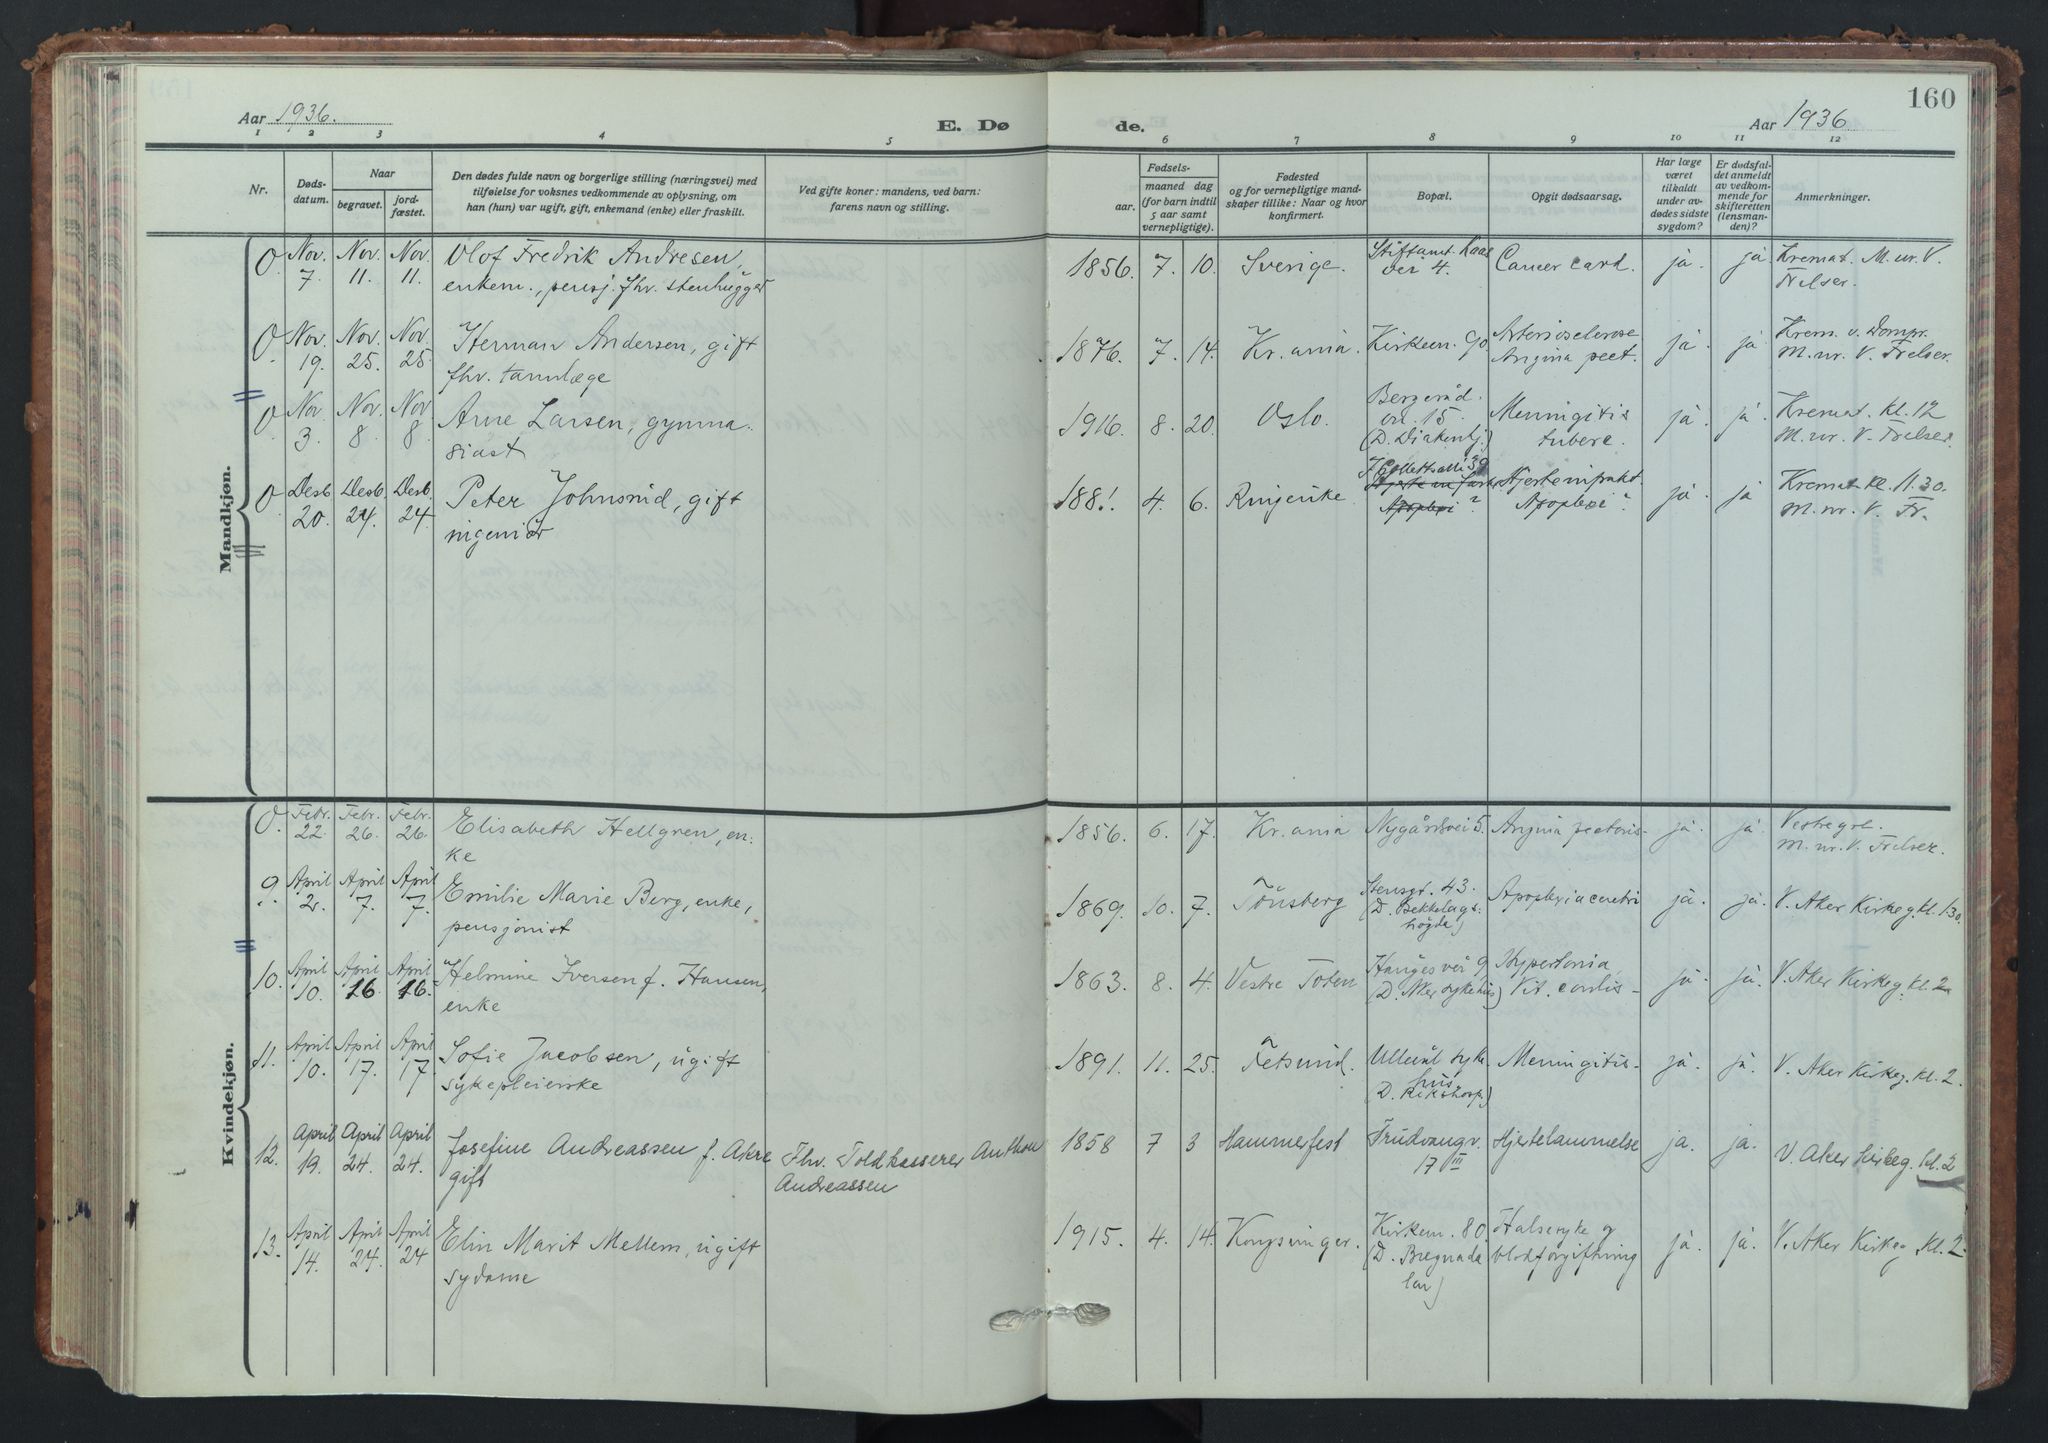 160
Aar 1936.
E. Dø
de.
Aar 1936
1 2 3 4 5 6 7 8 9 10 11 12
Nr.
Døds-
datum.
Naar
begravet.
jord-
fæstet.
Den dødes fulde navn og borgerlige stilling (næringsvei) med
tilføielse for voksnes vedkommende av oplysning, om
han (hun) var ugift, gift, enkemand (enke) eller fraskilt.
Ved gifte koner: mandens, ved barn:
farens navn og stilling.
Fødsels-
aar.
maaned dag
(for barn indtil
5 aar samt
vernepligtige).
Fødested
og for vernepligtige mand-
skaper tillike: Naar og hvor
konfirmert.
Bopæl.
Opgit dødsaarsag.
Har læge
været
tilkaldt
under av-
dødes sidste
sygdom?
Er dødsfal-
det anmeldt
av vedkom-
mende for
skifteretten
(lensman-
den)?
Anmerkninger.
Mandkjøn.
0 Nov. 7. Nov. 11. Nov. 11. Olof Fredrik Andresen, 1856. 7. 10. Sverige. Cancer card. ja. ja Kremat. M. nr. V.
enkem., pensj. fhv. stenhugger ver 4. Frelser.
0. Nov. 19. Nov. 25. Nov. 25. Herman Andersen, gift 1876. 7. 14. Kr.ania. Kirkevn. 90 Arteriosclerose ja. ja. Krem. v. Dompr.
fhv. tannlæge Angina pect. M. nr. V. Frelser.
0 Nov 3. Nov. 8 Nov 8. Arne Larsen, gymna- 1916. 8. 20. Oslo. vn. 15. Meningitis ja. ja. Kremat. kl. 12
siast tuberc. M. nr. V. Frelser.
0. Desb. 20. Desb. 24. Desb. 24. Peter Johnsrud, gift 1881. 4. 6. Ringerike J Collettsalle 39 Hjerteinfarkt. ja. ja Kremat. kl. 11.30.
ingeniør Apoplexi ? Apoplexi ? M. nr. V. Fr.
Kvindekjøn.
0. Febr. 22. Febr. 26. Febr. 26. Elisabeth Hellgren, en- 1856. 6. 17. Kr.ania Nygårdsvei 5. Angina pectoris. ja. ja. Vestre grl.
ke M. nr. V. Frelser.
9. April 2. April 7. April 7. Emilie Marie Berg, enke, 1869. 10. 7. Tönsberg Stensgt. 43. Apoplexia cerebri ja. ja. V. Aker Kirkeg. kl. 1.30.
pensjonist (D. Bekkelags-
högda)
10. April 10. April 16 April 16. Helmine Iversen f. Hansen, 1863. 8. 4. Vestre Toten Haugesvei 9 Hypertonia, ja. ja. V. Aker Kirkeg. kl. 2
enke (D. Aker sykehus) Vit. cordis
11. April 10. April 17. April 17. Sofie Jacobsen, ugift 1891. 11. 25. Fetsund. Ullevål syke- Meningitis ja. ja. V. Aker Kirkeg. kl. 2.
sykepleierske hus
(D. Rikshosp.)
12. April 19. April 24. April 24. Josefine Andreassen f. Akre Fhv. Toldkasserer Anthon 1858 7 3 Hammerfest Trudvangv. Hjertelammelse ja. ja. V. Aker Kirkeg. kl. 2
gift Andreassen 17 III
13. April 14. April 24. April 24 Elin Marit Mellem, ugift 1915. 4. 14. Kongsvinger. Kirkevn. 80. Halsesyke og ja. ja. V. Aker Kirkeg. kl. 2.
sydame (D. blodforgiftning